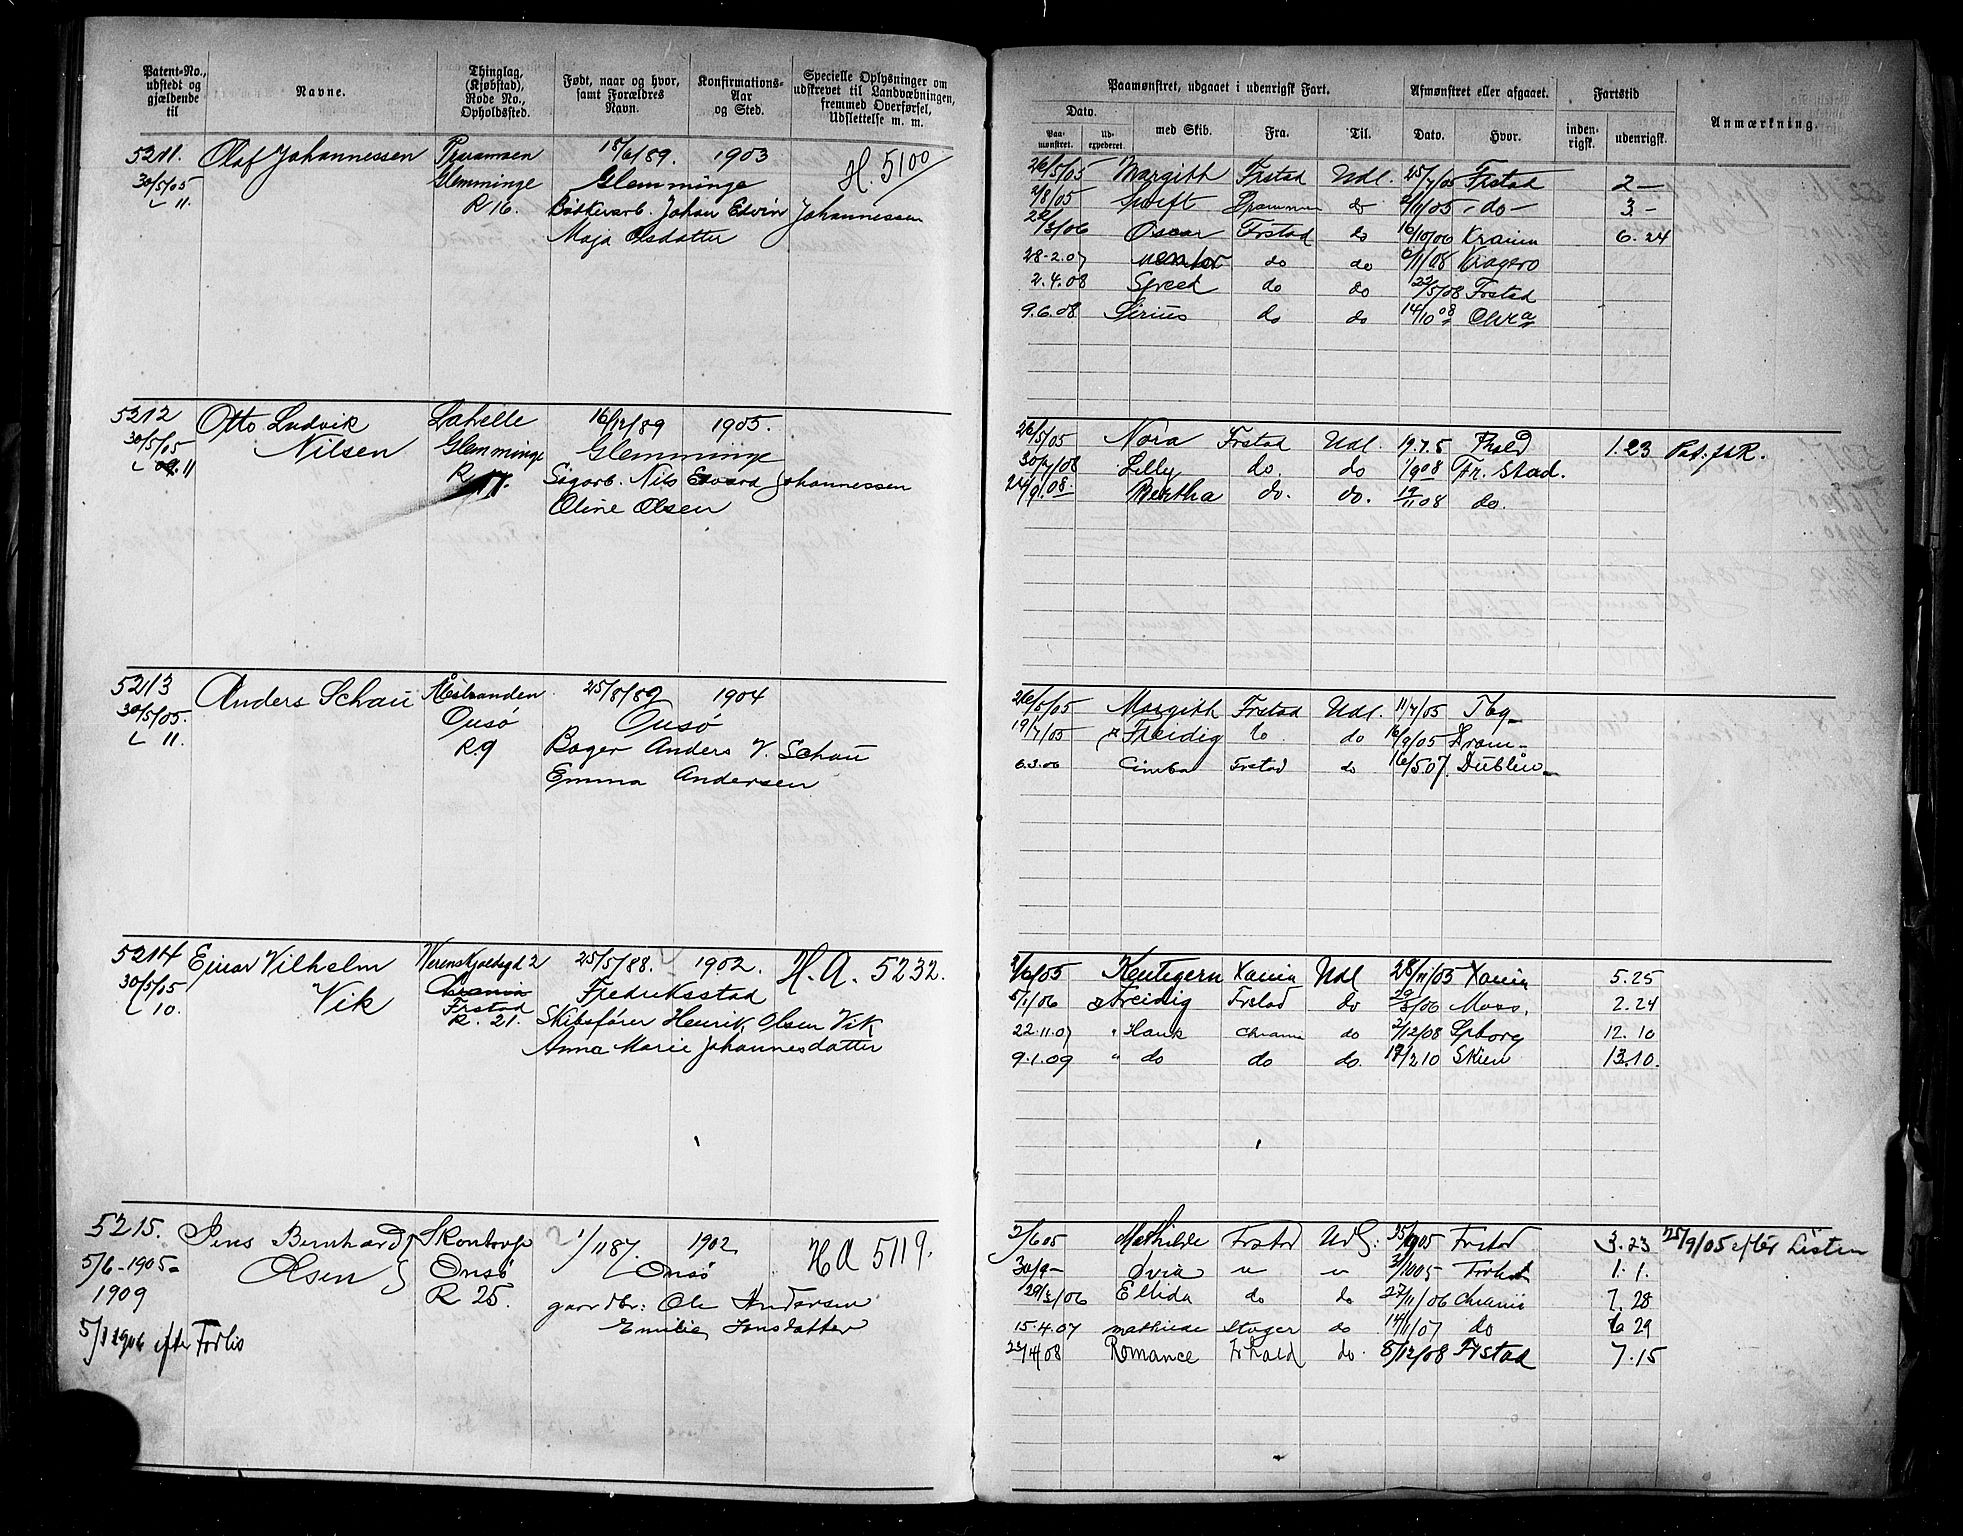 Patent-No., udstedt og gjældende til
Navne.
Thinglag, (Kjøbstad), Rode No., Opholdssted.
Født, naar og hvor, samt Forældres Navn.
Konfirmations-Aar og Sted.
Specielle Oplysninger om udskrevet til Landværbningen, fremmed Overførsel, Udslettelse m. m.
Paamønstret, udgaaet i udenrigsk Fart.
Afmønstret eller afgaaet.
Fartstid
Anmærkning.
Dato.
Paa-mønstret.
Ud-expederet.
med Skib.
Fra.
Til.
Dato.
Hvor.
inden-rigsk.
udenrigsk.
5211. Olaf Johannessen 18/6/89. 1903 H. 5100
30/5/05 Glemminge Glemminge
L 11. R 16. Bødkerarb. Johan Edvin Johannessen
Maja Olsdatter
26/5/05 Margith Frstad Udl. 25/7/05 Frstad 2 —
2/8/05 Swift Drammen do 2/11/05 - do - 3 -
22/3/06 Oscar Frstad do 16/10/06 Krania 6. 24
28-2.07 Mentor do do 6/11/08 Kragerø
2.4.08 Speed do do 23/5/08 Frstad
9.6.08 Sirius do do 14/10 08
5212 Otto Ludvik 16/12/89 1905.
30/5/05 Nilsen Glemminge Glemminge
L 09. 11 R 11. Sagarb. Nils Edvard Johannessen
Oline Olsen
26/5/05 Nora Frstad Udl. 19.7.5 1.23
30/7/08 Lilly do. do 1/9 08 Fr. stad.
24/9.08. Bertha do. do. 19/11 08 do.
5213 Anders Schau Ålestranden 25/8/89 1904
30/5/05. Onsø Onsø
L 11. R.9 Bager Anders V. Schau
Emma Andersen
26/5/05 Margith Frstad Udl. 11/7/05 Tbg
19/7/05 Freidig do 16/9/05 Dram-
6.3.06 Cimba Frstad do 16/5 07. Dublin
5214 Einar Vilhelm Werenskjoldsgd 2 25/5/88. 1902. H. A. 5232.
30/5/05 Vik Frstad Fredriksstad
L 10. R. 21. Skibsfører Henrik Olsen Vik
Anna Marie Johannesdatter
2/6/05 Kentigern Xania Udl 28/11/05 Xania 5.25
5/1/06 Freidig Frstad do 29/3/06 Moss. 2.24
22.11.07 " Hauk Chrania do 2/12/08 Spborg 12.10
9.1.09 " do do do. 19/2 10 Skien 13.10.
5215. Jens Bernhard 1/11 87. 1902 H A 5119.
5/6-1905- Olsen Onsø Onsø
1909 R 25. gaardbr: Ole Andersen
Emilie Jonsdatter
5/1 1906 efter Forlis
2/6 05 Mathilde Frstad Udl: 25/9 05 Frstad 3. 23 25/9/05 efter Listen
30/9- Svia " " 1. 1.
29/3/06 Ellida do do 27/11/06 Chrania 7. 28
15.4.07 Mathilde do 14/11/07 do 6 29
23/4/08 Romance Frhald do 8/12/08 Frstad 7.15